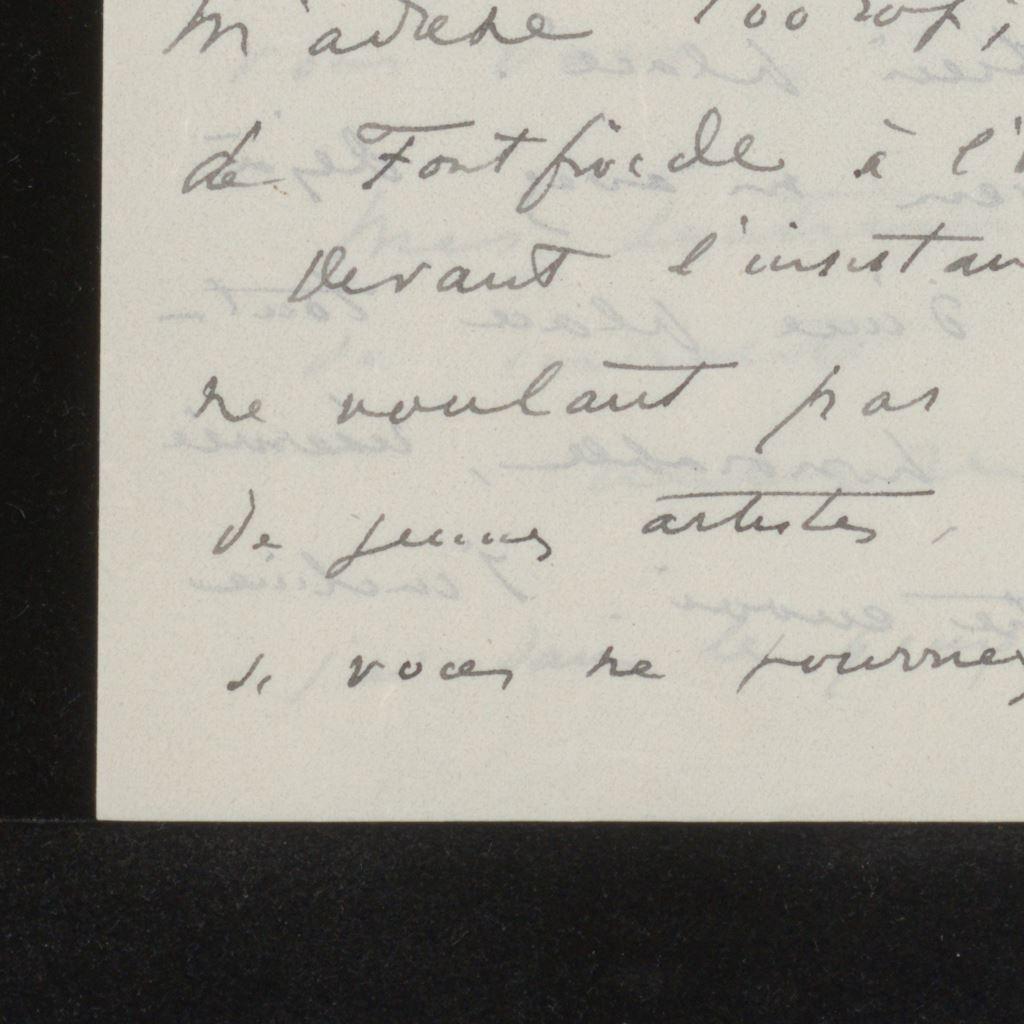 m'adresse
de Fontfroide à l'
Devant l'insistan
ne voulant pas
de jeunes artistes,
si vous ne pourriez